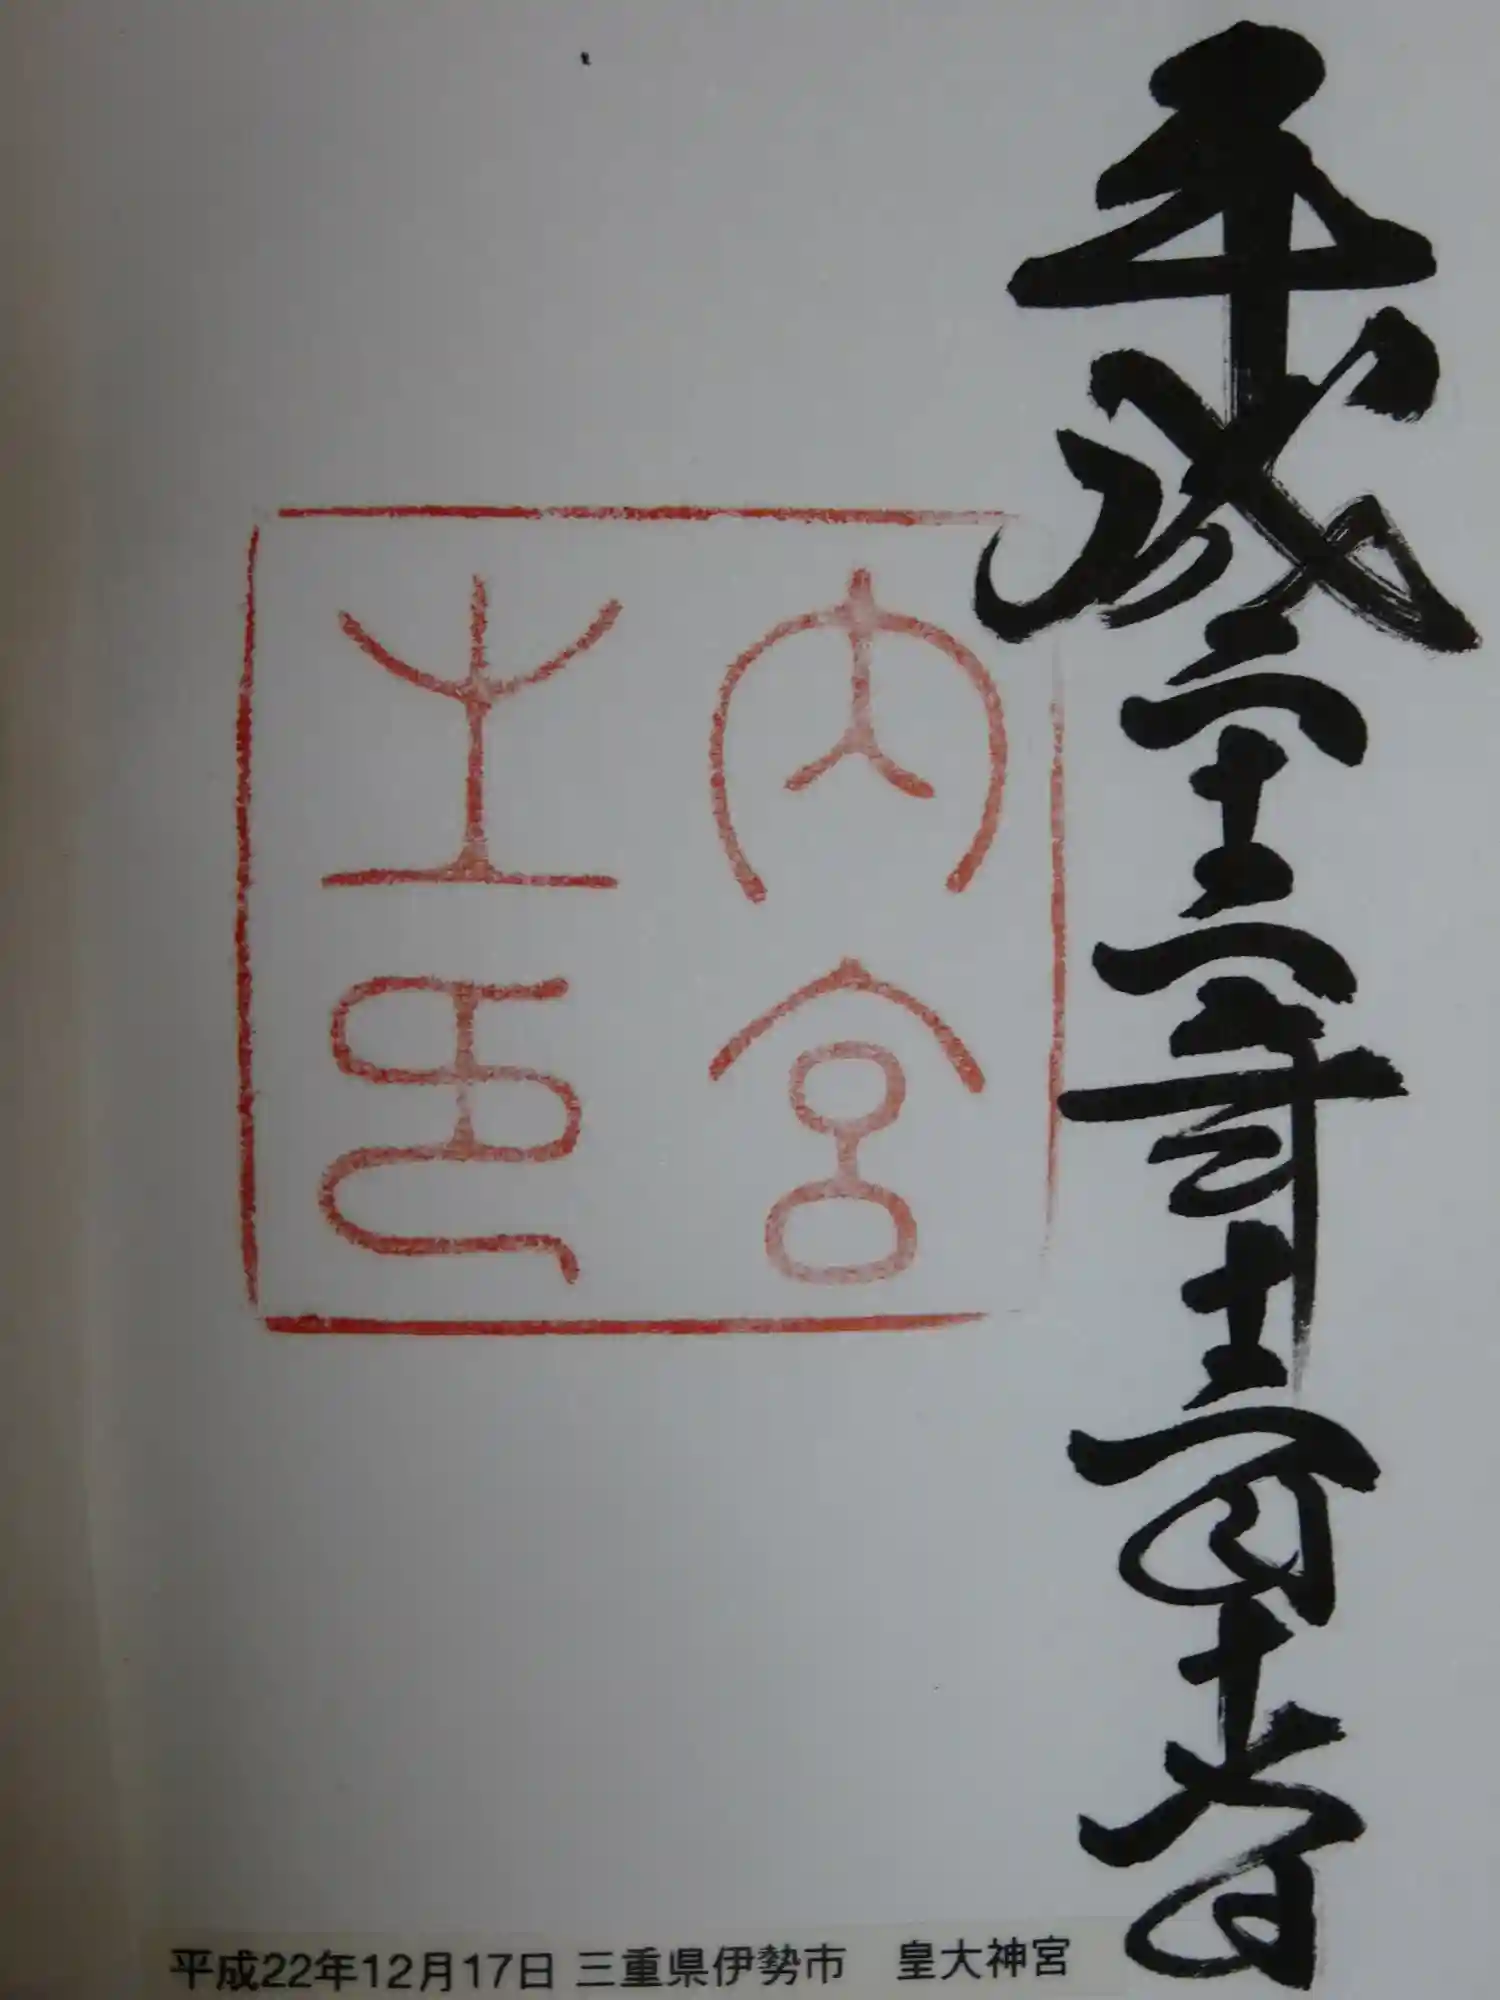 平成二十二年十二月十七日
内宮
之印
平成22年12月17日 三重県伊勢市 皇大神宮